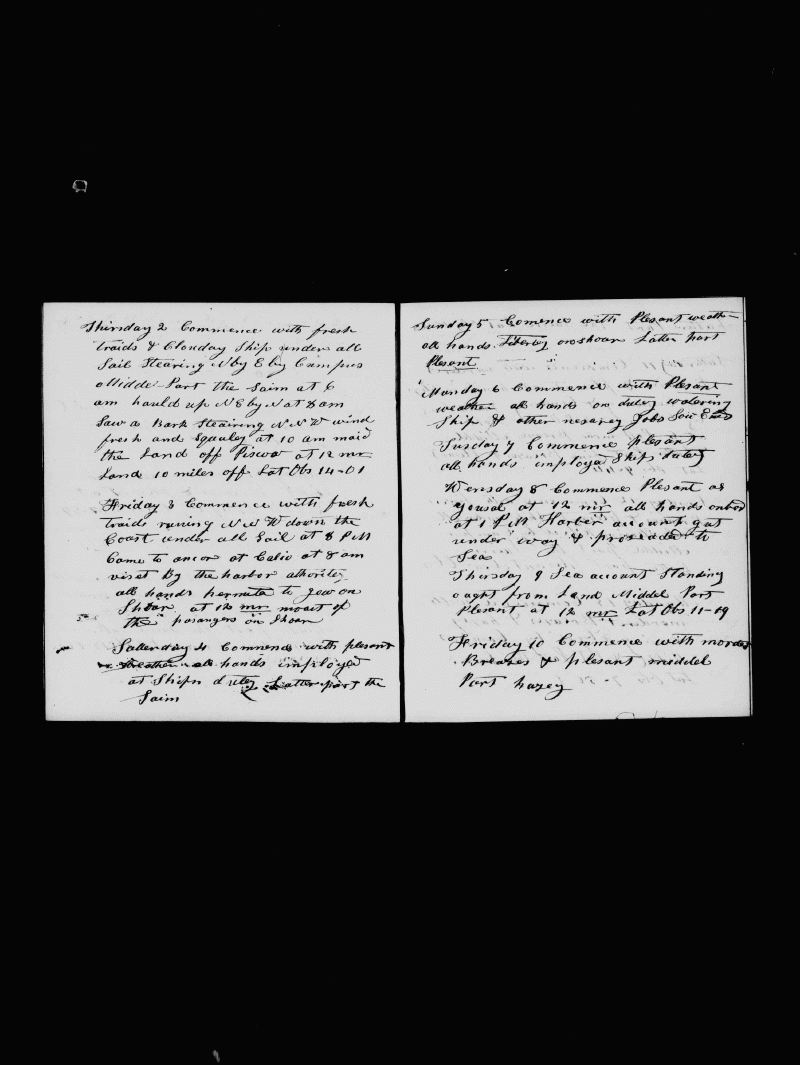 Thirsday 2 Commence with fresh
traids & Clouday Ship under all
Sail Stearing N by E by Cumpus
Middel Part the Saim at 6
am hauld up N E by N at 8 am
Saw a Bark Stearing N N W wind
fresh and Squaley at 10 am maid
the Land off Piscoa at 12 mr
Land 10 miles off Lat Obs 14-01
Friday 3 Commence with fresh
traids runing N N W down the
Coast under all Sail at 8 PM
Came to ancor at Calio at 8 am
viset By the harbor athority
all hands hermita to gew on
Shoar at 12 mr moast of
the pasangers on Shoar
Satterday 4 Commence with plesant
weather all hands imployed
at Ships dutey Latter part the
Saim
Sunday 5 Comence with Plesant weath
all hands Liberty on shoar Latter part
Plesant
Monday 6 Commence with Plesant
weather all hands on dutey watering
Ship & other nesarey Jobs Sou Ends
Tusday 7 Commence plesant
all hands imployed Ships dutey
Wensday 8 Commence Plesant as
yousal at 12 mr all hands onbord
at 1 PM Harber account gut
under way & proseaded to
Sea
Thirsday 9 Sea account Standing
ought from Land Middel Part
Plesent at 12 mr Lat Obs 11-19
Friday 10 Commence with mordrat
Breazes & plesant middel
Part hazey